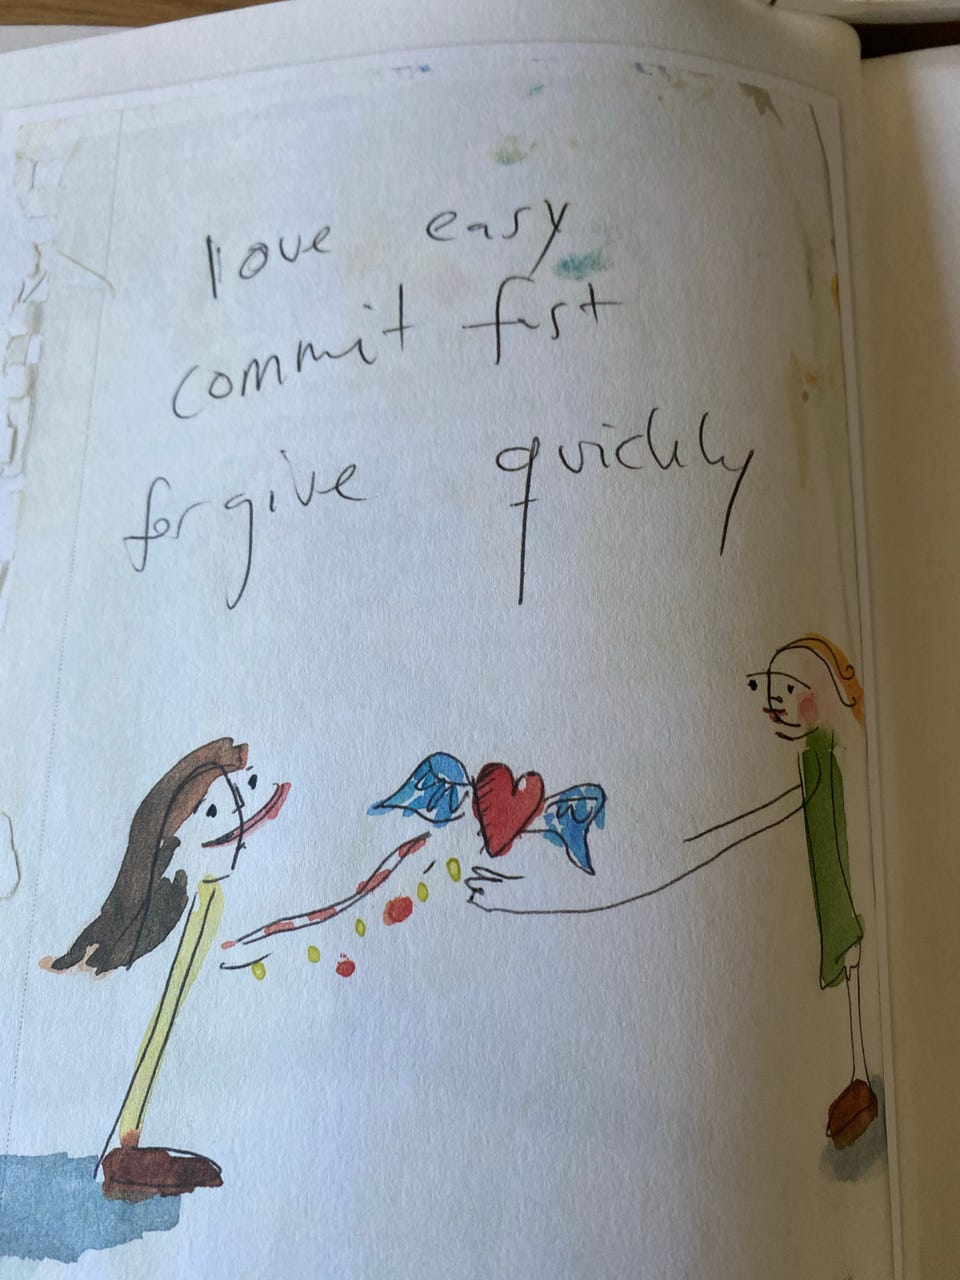 love easy
commit fast
forgive quickly